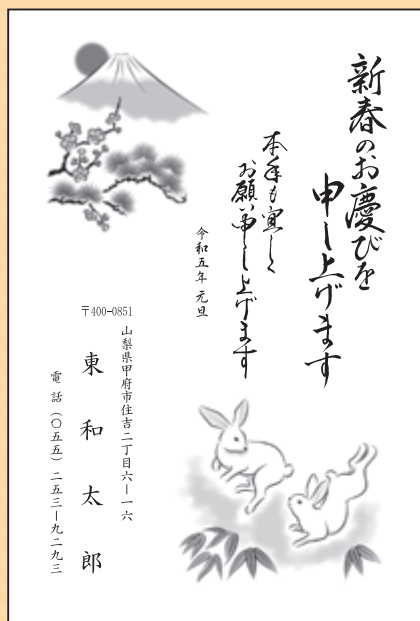 新春のお慶びを
申し上げます
本年も宜しく
お願い申し上げます
令和五年 元旦
〒400-0851
山梨県甲府市住吉二丁目六ー一六
東和太郎
電話（〇五五）二五三ー九二九三